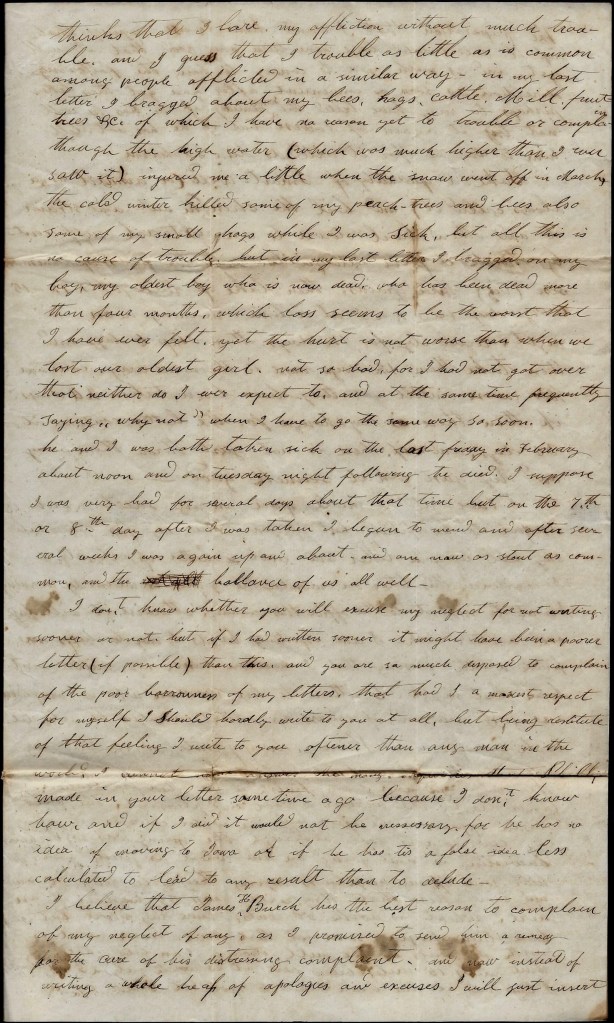 thinks that I bare my affliction without much trou-
ble. and I guess that I trouble as little as is common
among people afflicted in a similar way - in my last
letter I bragged about my bees, hogs, cattle, Mill, fruit
trees &c. of which I have no reason yet to trouble or complain
though the high water (which was much higher than I ever
saw it) injured me a little when the snow went off in March,
the cold winter killed some of my peach trees and bees also
some of my small shoats while I was Sick, but all this is
no cause of trouble. but in my last letter I bragged on my
boy, my oldest boy who is now dead, who has been dead more
than four months, which loss seems to be the worst that
I have ever felt. yet the hurt is not worse than when we
lost our oldest girl. not so bad, for I had not got over
that neither do I ever expect to, and at the same time frequently
saying,, why not" when I have to go the same way so soon.
he and I was both taken sick on the last friday in February
about noon and on tuesday night following he died. I suppose
I was very bad for several days about that time but on the 7.th
or 8th day after I was taken I began to mend and after sev-
eral weeks I was again up and about and am now as stout as com-
mon, and the ballance of us all well -
I don,t know whether you will excuse my neglect for not writing
sooner or not. but if I had written sooner it might have been a poorer
letter (if possible) than this. and you are so much disposed to complain
of the poor of my letters, that had I a respect
for myself I should hardly write to you at all, but being destitute
of that feeling I write to you oftener than any man in the
world. I
made in your letter sometime ago because I don,t know
how, and if I did it would not be nessessary. for he has no
idea of moving to Iowa or if he has tis a false idea less
calculated to lead to any result than to delude -
I believe that James H Buech has the best reason to complain
of my neglect of any, as I promised to send him a remedy
for the cure of his distressing complaint. and now instead of
writing a whole heap of apologies and excuses I will just insert